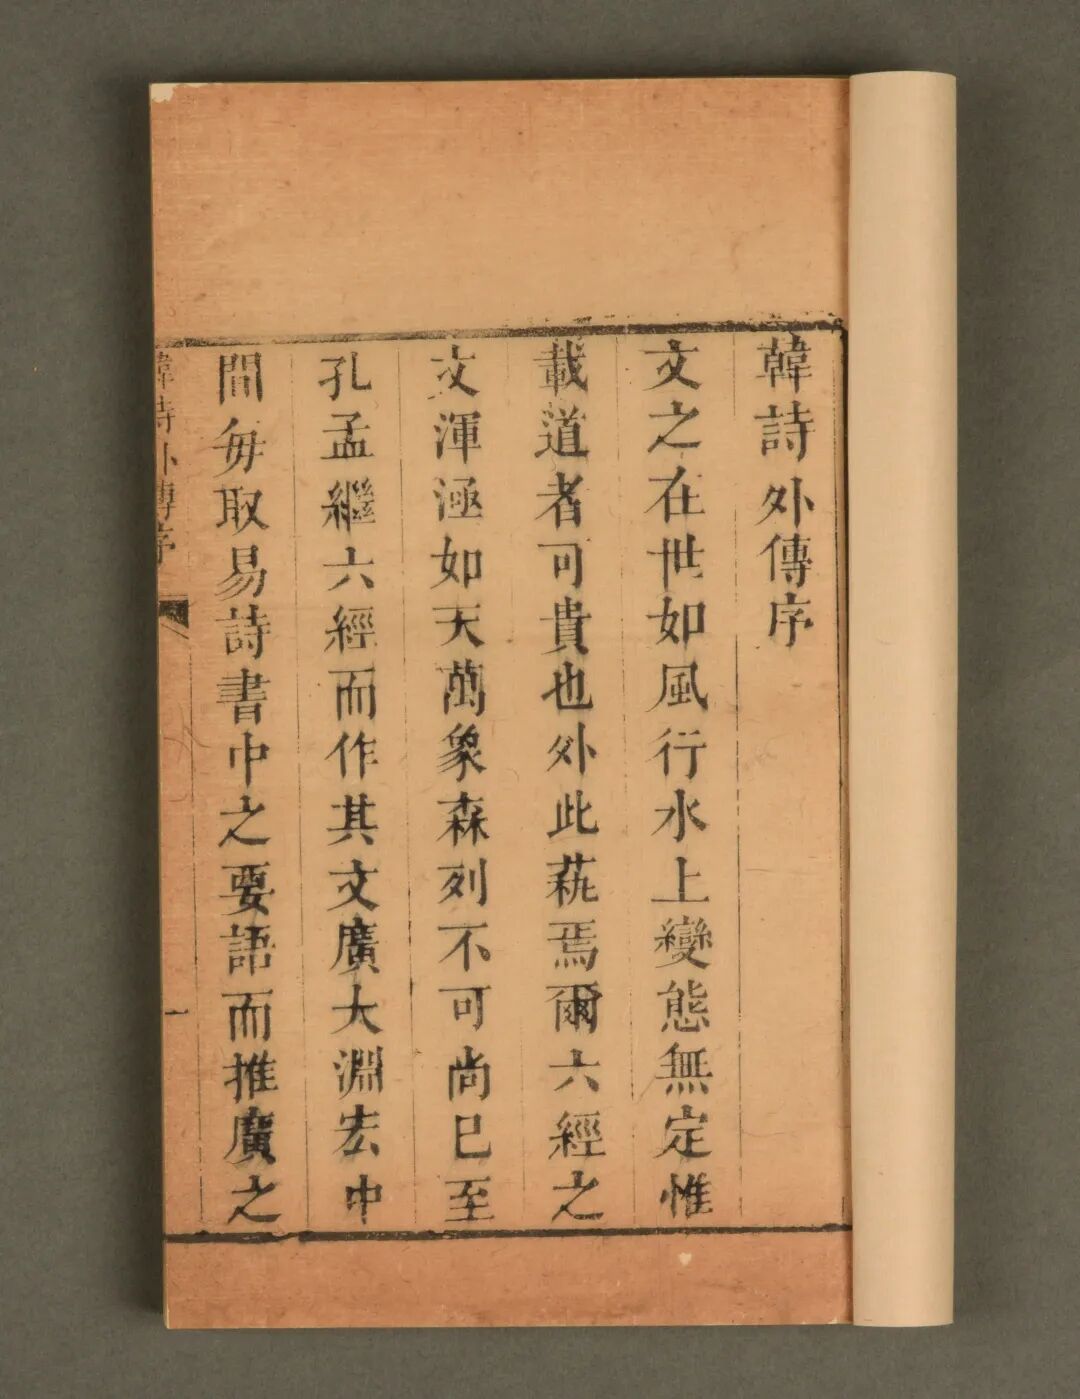 韓詩外傳序
文之在世如風行水上變態無定惟
載道者可貴也外此蓺焉爾六經之
文渾涵如天萬象森列不可尚已至
孔孟繼六經而作其文廣大淵宏中
間每取易詩書中之要語而推廣之
韓詩外傳序
一